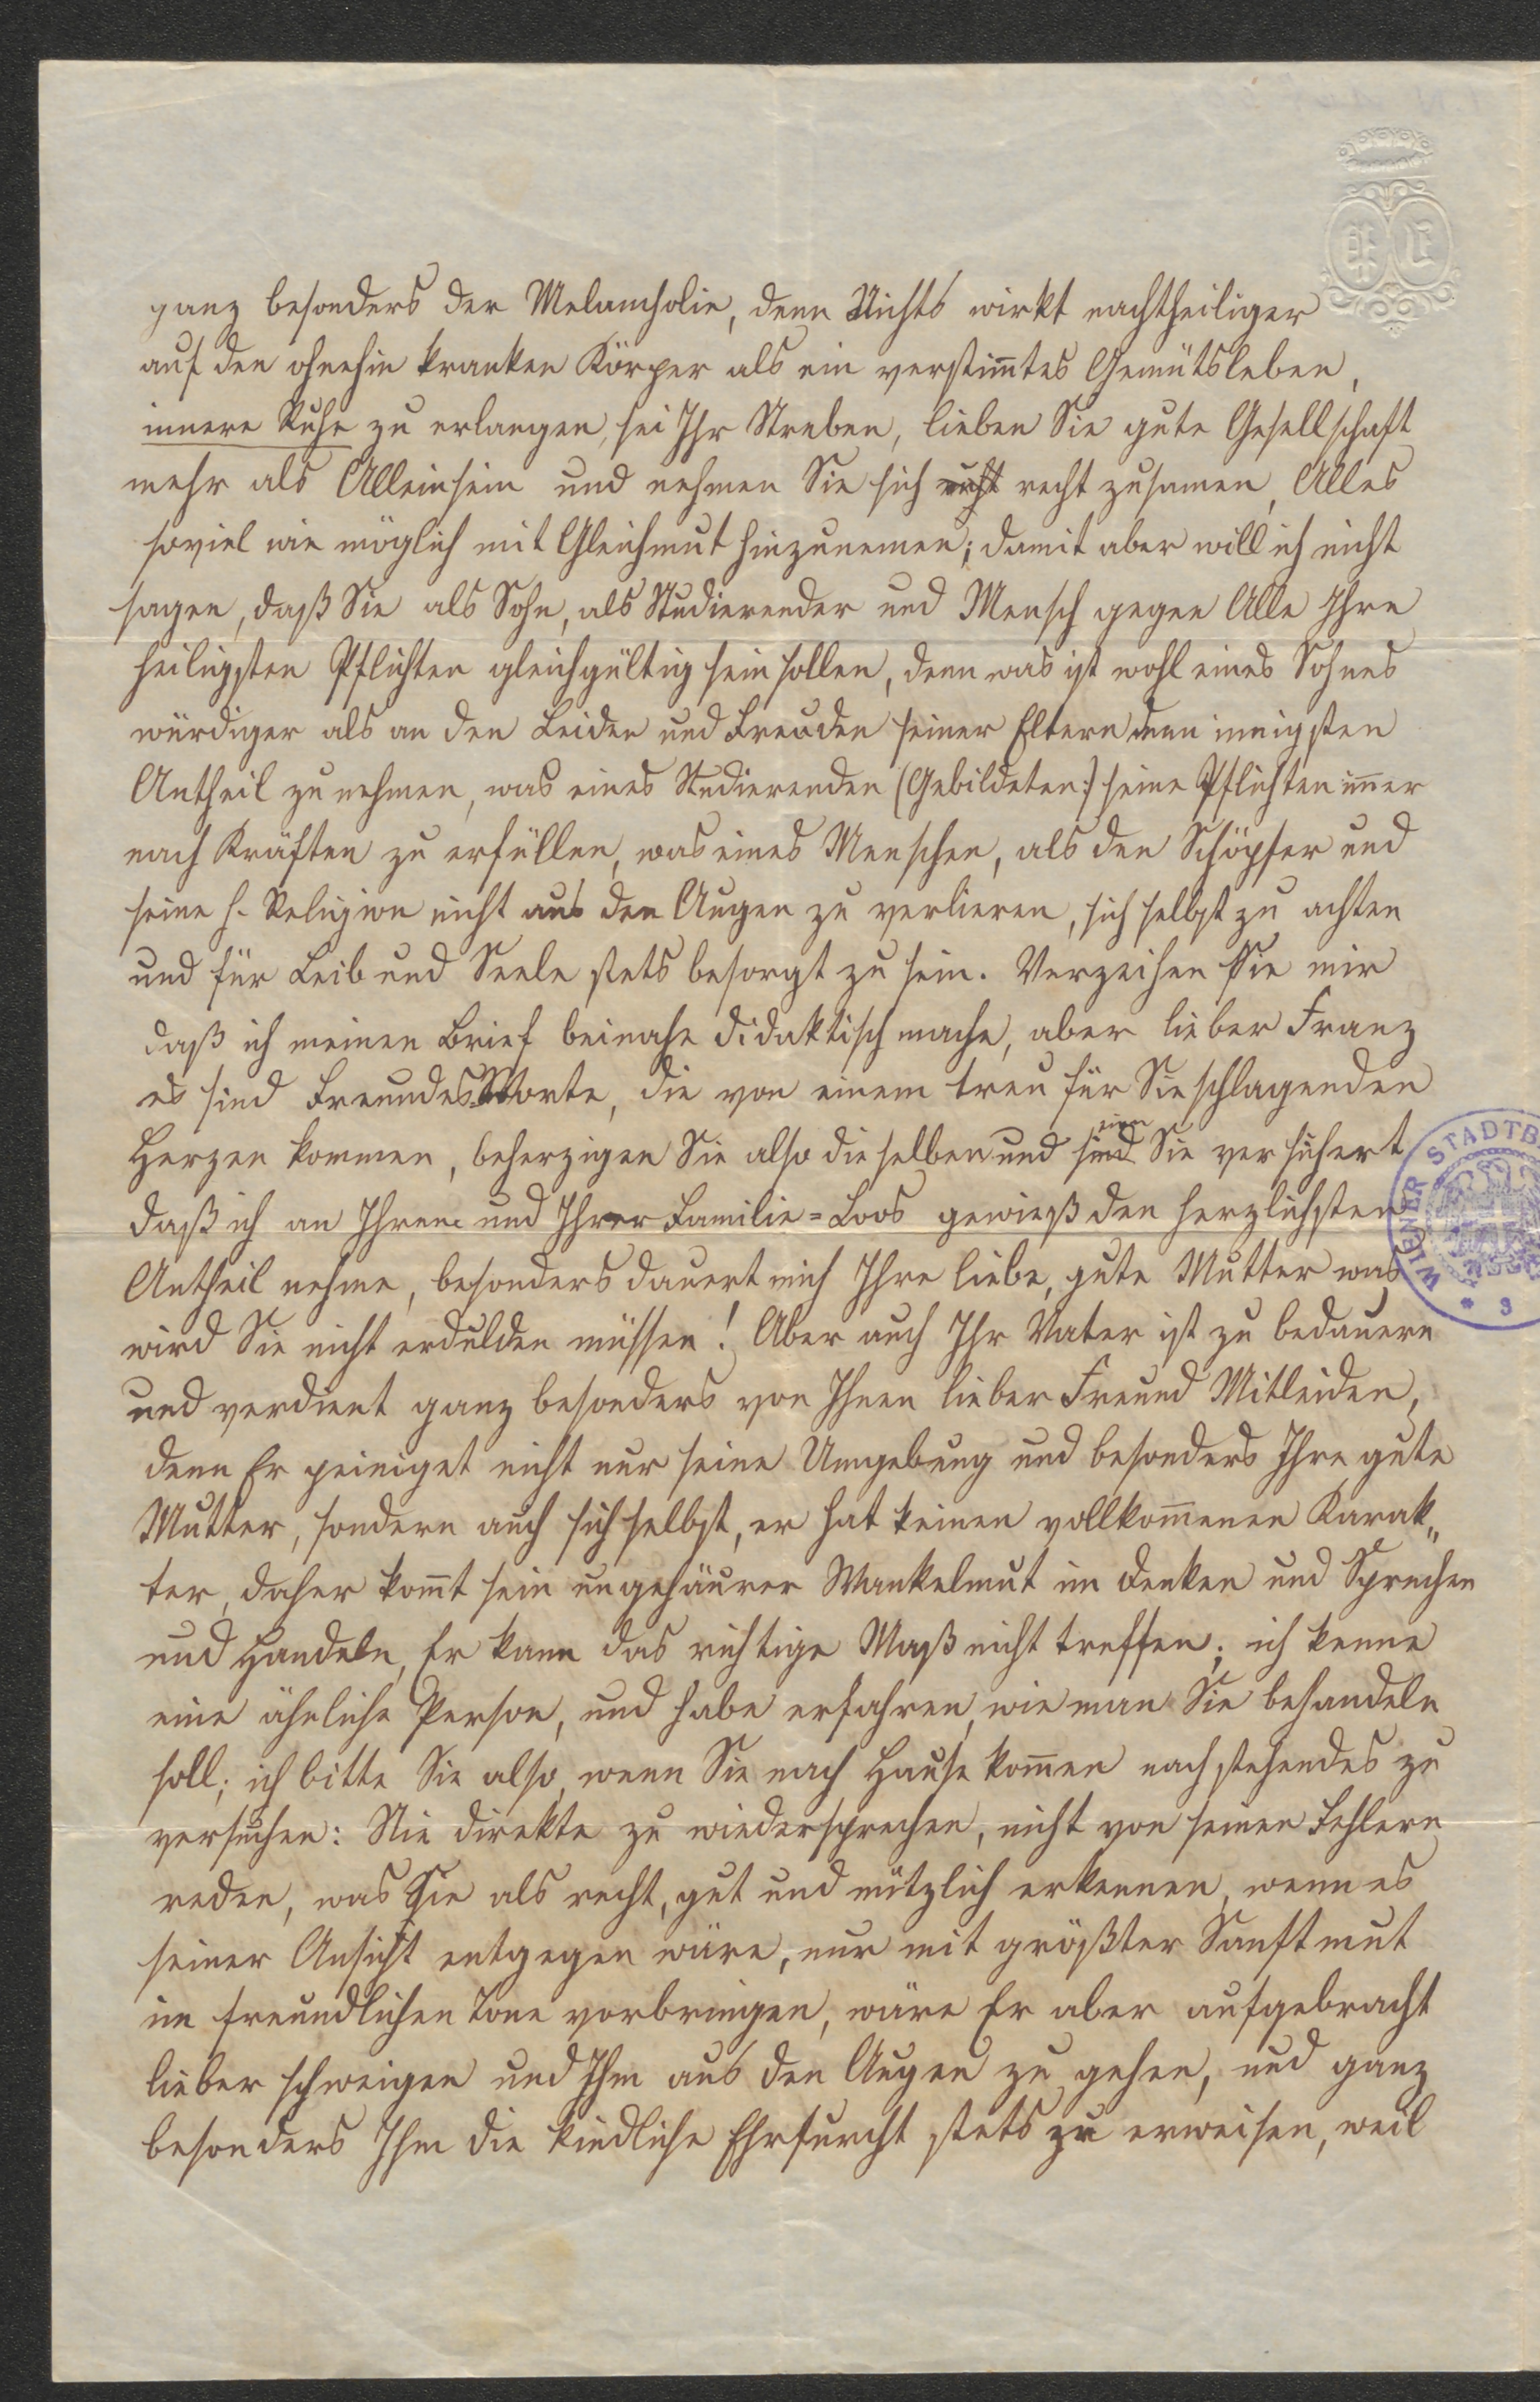 ganz besonders der Melancholie, denn Nichts wirkt nachtheiliger
auf den ohnehin kranken Körper als ein verstimtes Gemütsleben,
innere Ruhe zu erlangen, sei Ihr Streben, lieben Sie gute Gesellschaft
mehr als Alleinsein und nehmen Sie sich recht zusamen, Alles
soviel wie möglich mit Gleichmut hinzunemen; damit aber will ich nicht
sagen, daß Sie als Sohn, als Studierender und Mensch gegen Alle Ihre
heiligsten Pflichten gleichgültig sein sollen, denn was ist wohl eines Sohnes
würdiger als an den Leiden und Freuden seiner Eltern den innigsten
Antheil zu nehmen, was eines Studierenden (Gebildeten:) seine Pflichten imer
nach Kräften zu erfüllen, was eines Menschen, als den Schöpfer und
seine h. Religion nicht aus den Augen zu verlieren, sich selbst zu achten
und für Leib und Seele stets besorgt zu sein. Verzeihen Sie mir
daß ich meinen Brief beinahe didaktisch mache, aber lieber Franz
es sind Freundes Worte, die von einem treu für Sie schlagenden
Herzen kommen, beherzigen Sie also dieselben und sind Sie versichert
daß ich an Ihren und Ihrer Familie=Loos gewieß den herzlichsten
Antheil nehme, besonders dauert mich Ihre liebe, gute Mutter was
wird Sie nicht erdulden müssen! Aber auch Ihr Vater ist zu bedauern
und verdient ganz besonders von Ihnen lieber Freund Mitleiden,
denn Er peiniget nicht nur seine Umgebung und besonders Ihre gute
Mutter, sondern auch sich selbst, er hat keinen vollkomenen Karak„
ter, daher komt sein ungehäurer Wankelmut im Denken und Sprechen
und Handeln, Er kann das richtige Maß nicht treffen; ich kenne
eine ähnliche Person, und habe erfahren, wie man Sie behandeln
soll; ich bitte Sie also, wenn Sie nach Hause komen nachstehendes zu
versuchen: Nie direkte zu wiedersprechen, nicht von seinen Fehlern
reden, was Sie als recht, gut und nützlich erkennen, wenn es
seiner Ansicht entgegen wäre, nur mit größter Sanftmut
im freundlichen Tone vorbringen, wäre Er aber aufgebracht
lieber schweigen und Ihm aus den Augen zu gehen, und ganz
besonders Ihm die kindliche Ehrfurcht stets zu erweisen, weil
WIENER STADTB